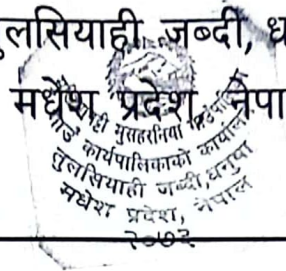 तुलसियाही जब्दी, ध
मधेश प्रदेश, नेपा
मुसहरनिया
गाउँ कार्यपालिकाको कार्यालय
तुलसियाही जब्दी, धनुषा
मधेश प्रदेश, नेपाल
२०७३